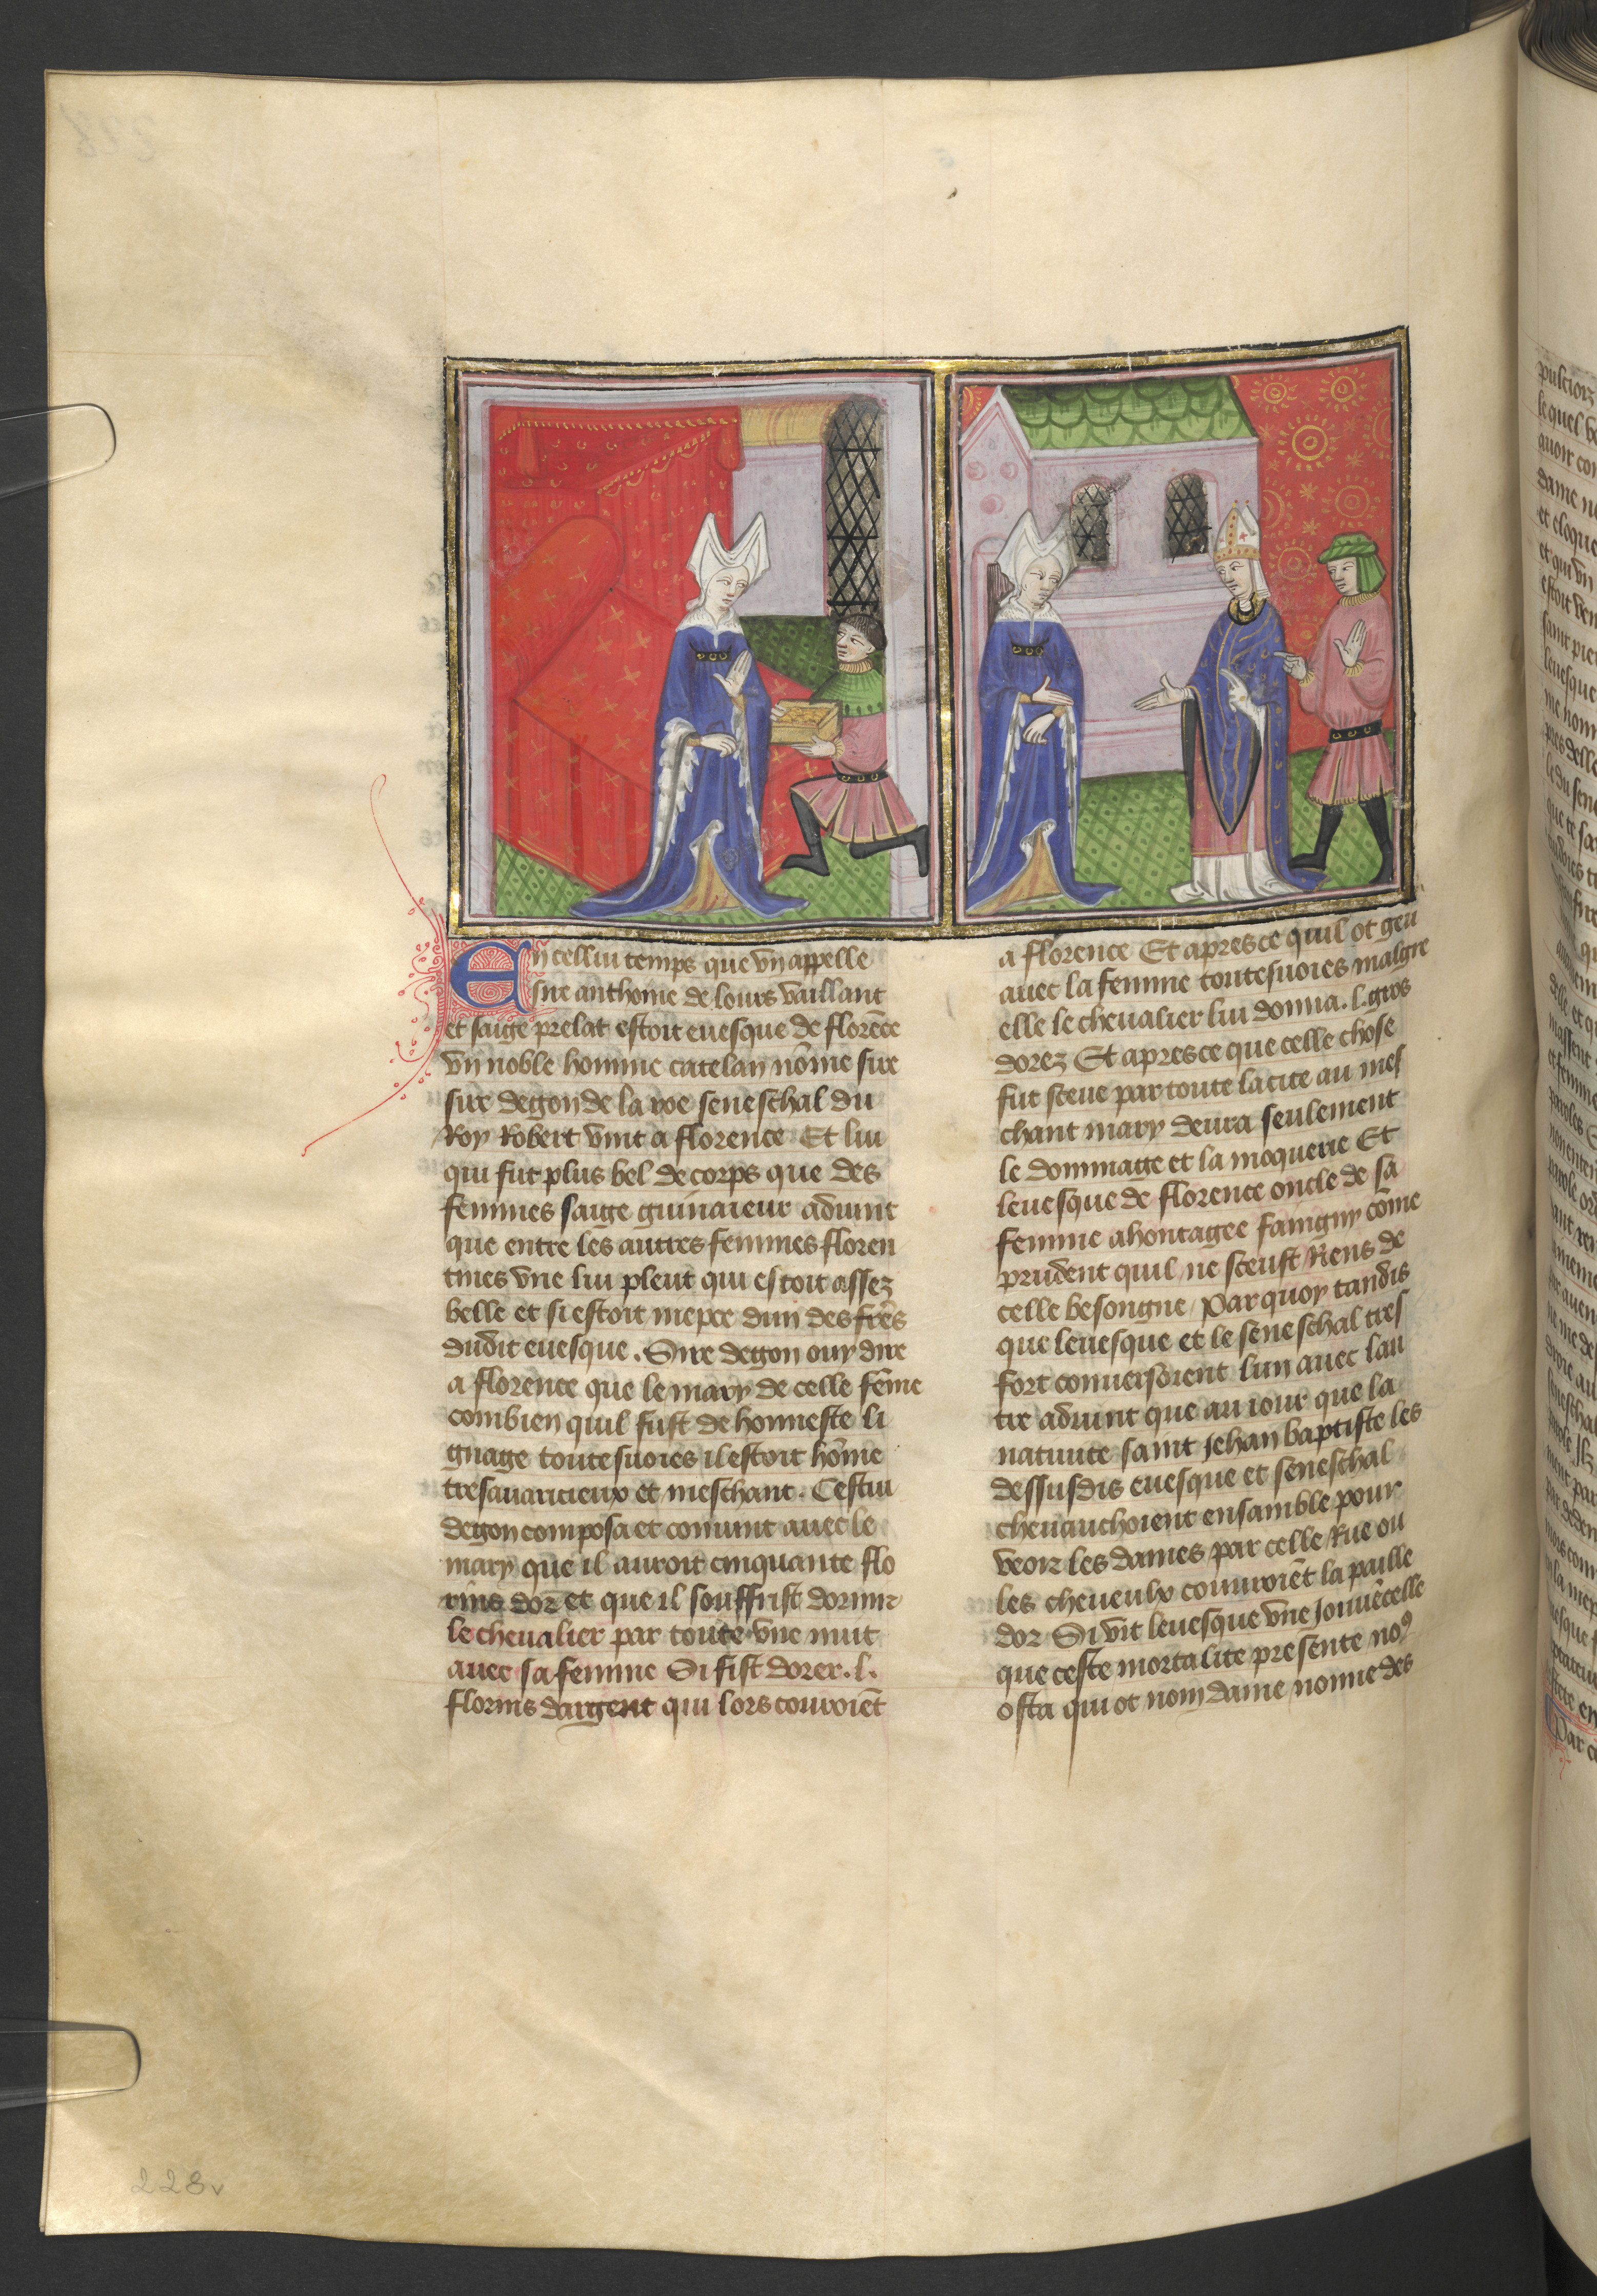 En cellui temps que vn appelle
sire anthoine de lours vaillant
et saige prelat estoit euesque de florēce
vn noble homme catelan nōme sire
sire degon de la roe seneschal du
Roy Robert vint a florence Et lui
qui fut plus bel de corps que des
femmes saige guinaieur aduint
que entre les autres femmes floren
tines vne lui pleut qui estoit assez
belle et si estoit niepce dun des fr̄es
dudit euesque. Sire degon ouy dire
a florence que le mary de celle fēme
combien quil fust de honneste li
gnage toutesuoies il estoit hōme
tresauaricieux et meschant. Cestui
degon composa et conuint auec le
mary que il auroit cinquante flo
rins dor et que il souffrist dormir
le cheualier par toute vne nuit
auec sa femme Si fist dorer .l.
florins dargent qui lors couroiēt
a florence Et apres ce quil ot geu
auec la femme toutesuoies malgre
elle le cheualier lui donna .l. gros
dorez Et apres ce que celle chose
fut sceue par toute la cite au mes
chant mary deura seulement
le dommage et la moquerie Et
leuesque de florence oncle de sa
femme ahontagee faingny cōme
prudent quil ne sceust Riens de
celle besongne Par quoy tandis
que leuesque et le seneschal tres
fort conuersoient lun auec lau
tre aduint que au iour que la
natiuite saint Jehan baptiste les
dessusdis euesque et seneschal
cheuauchoient ensamble pour
veoir les dames par celle Rue ou
les cheueulx couuroiēt la paille
dor Si vit leuesque vne jouuēcelle
que ceste mortalite presente noꝰ
osta qui ot nom dame nonne des
228v